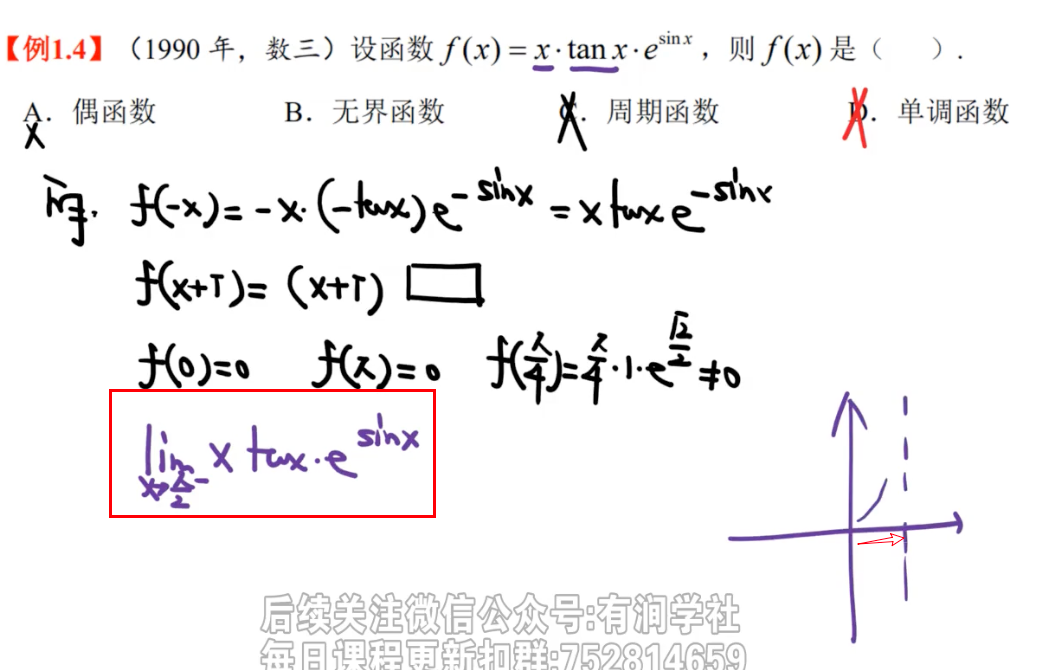 【例1.4】（1990 年，数三）设函数 f(x) = x · tan x · e^{sin x}，则 f(x) 是（　）.
A. 偶函数　B. 无界函数　C. 周期函数　D. 单调函数
f(-x) = -x·(-tanx)e^{-sinx} = x tanx e^{-sinx}
f(x+T) = (x+T)
f(0)=0　f(π)=0　f(π/4)=π/4·1·e^{√2/2}≠0
lim_{x→π/2^-} x tanx·e^{sinx}
后续关注微信公众号:有涧学社
每日课程更新扣群:752814659